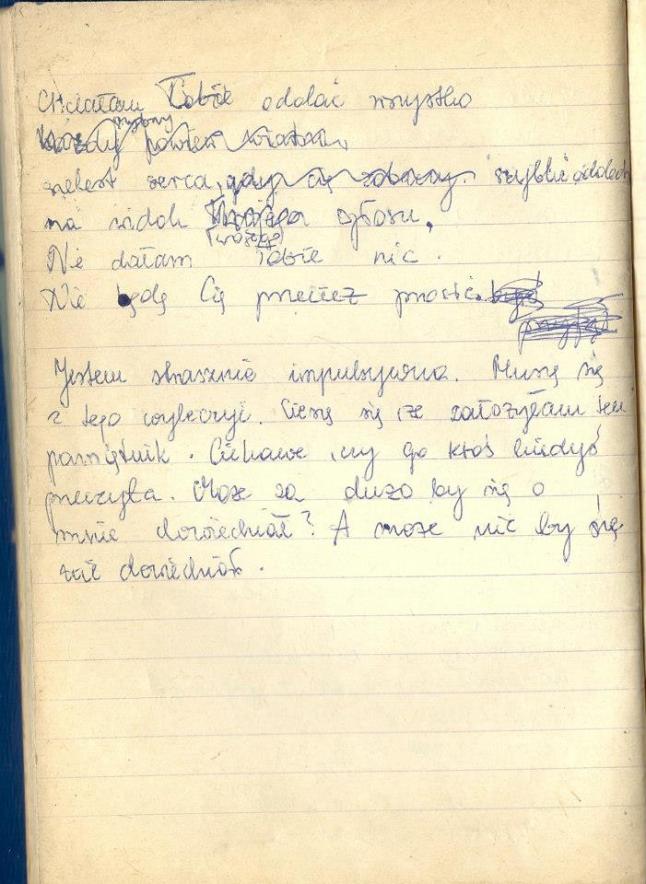 Chciałam Tobie oddać wszystko
każdy powiew wiatru,
szelest serca, gdy cię zobaczy. szybki oddech
na widok Twojego głosu.
Twojego
Nie dałam Tobie nic.
Nie będę Cię przecież prosić.
przyjąć
Jestem strasznie impulsywna. Muszę się
z tego wyleczyć. Cieszę się że założyłam ten
pamiętnik. Ciekawe, czy go ktoś kiedyś
przeczyta. Może za dużo by się o
mnie dowiedział? A może nic by się
nie dowiedział.